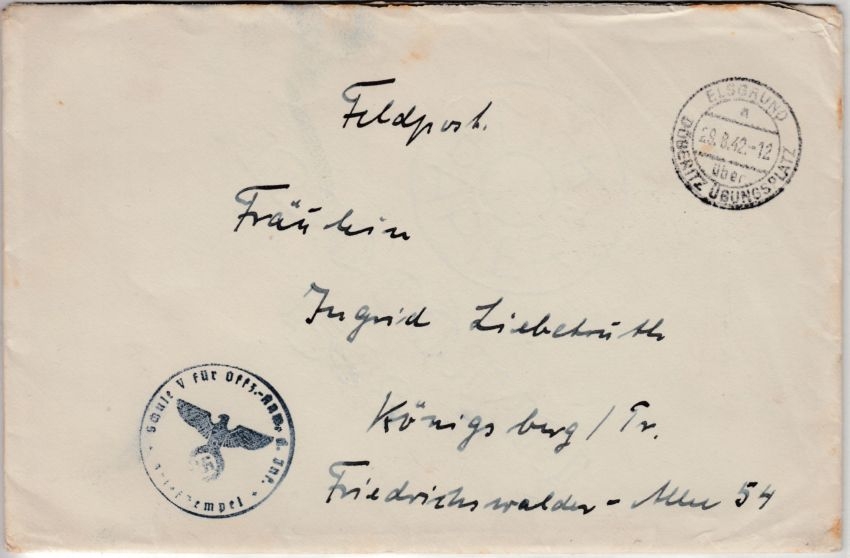 Feldpost.
ELSGRUND
a
29.8.42.-12
über
DÖBERITZ ÜBUNGSPLATZ
Fräulein
Ingrid Liebetruth
Königsberg / Pr.
Friedrichswalder - Allee 54
Schule V für Offz.-Anw. d. Inf.
Briefstempel